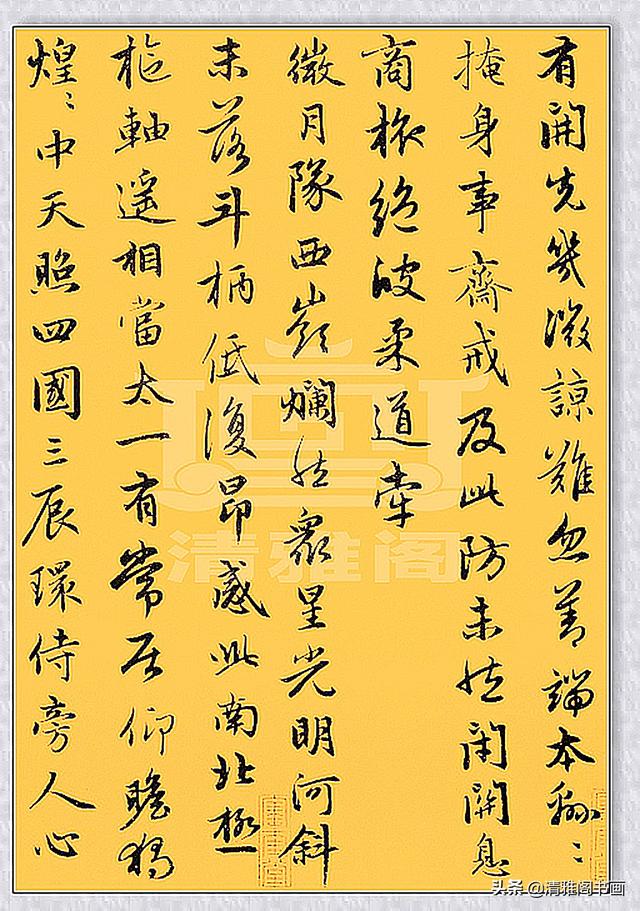 有開先幾微諒難忽善端本綿〻
掩身事齋戒及此防未然閉關息
商旅絕彼柔道牽
微月隊西嶺爛然眾星光明河斜
未落斗柄低復昂感此南北極
樞軸遥相當太一有常居仰瞻獨
煌〻中天照四國三辰環侍旁人心
清雅阁
头条 @清雅阁书画